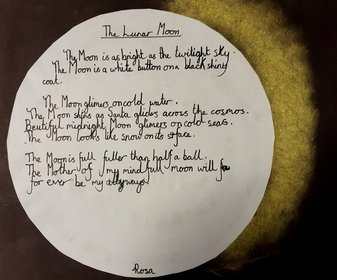 The Lunar Moon
The Moon is as bright as the twilight sky.
The Moon is a white button on a black shiny
coat.
The Moon glimers on cold water.
The Moon shins as Santa glides across the cosmos.
Beutiful midnight Moon glimers on cold seas.
The Moon looks like snow on its
The Moon is full fuller than half a ball.
The Mother of my mind full moon will
for ever be my
Rosa